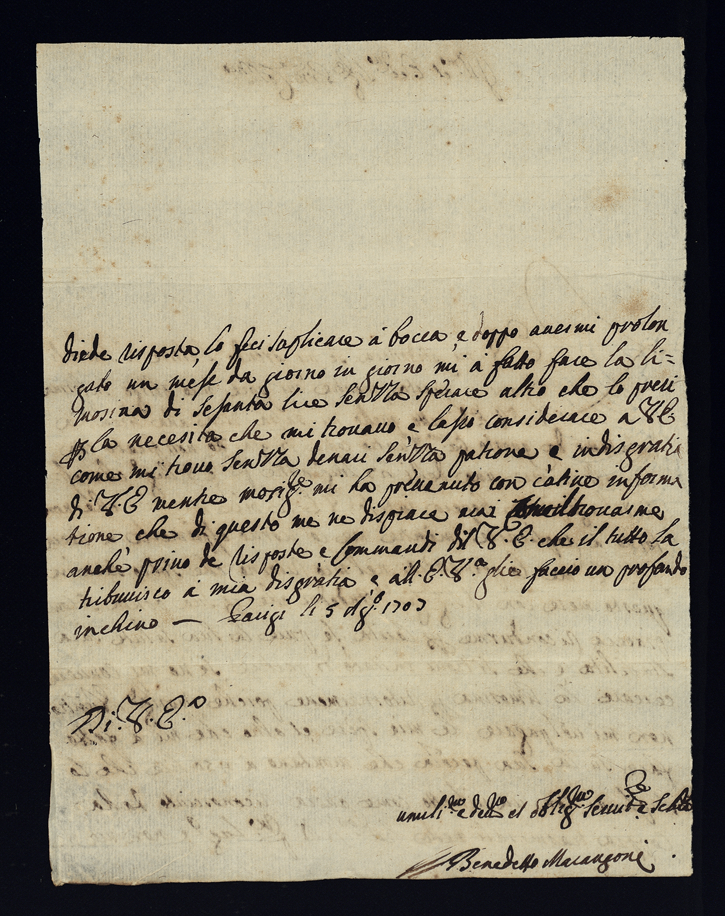 diede risposta, lo feci suplicare á bocca, e doppo auermi prolon
gato un mese da giorno in giorno mi á fatto fare la li=
mosina di sesanta lire senza sperare altro che lo preci
la necesita che mi trouauo e lasso considerare a V E
come mi trouo senza denari senza patrone e in disgratia
di V. E mentre mi ha preuenuto con catiue informa
tione che di questo me ne dispiace mai trouarme
anche priuo de risposte e Commandi dil V. E che il tutto la
tribuisco á mia disgratia e all E. V.ª glie faccio un profondo
inchino — Parigi li 5 1703
Di. V. E.ª
umili.mo e deu.mo et oblig.mo Seruit.e
Benedetto Marangoni